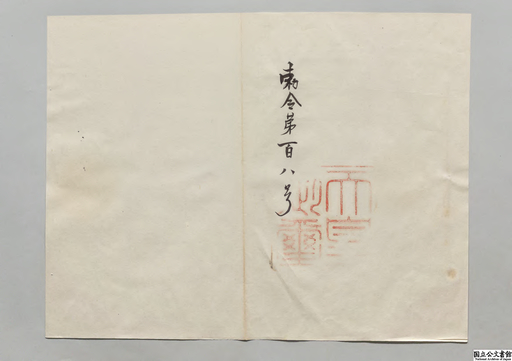 勅令第百八号
天皇之璽
国立公文書館
National Archives of Japan